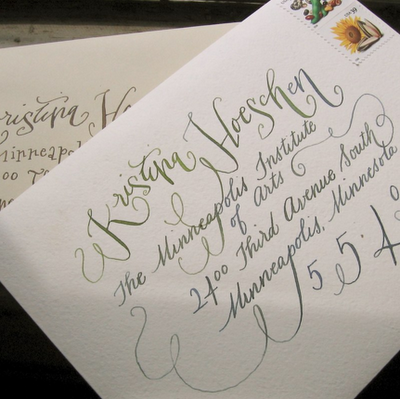 Kristina Hoeschen
The Minneapolis Institute
of Arts
2400 Third Avenue South
Minneapolis, Minnesota
5 5 4 0
Kristina
Minneapol